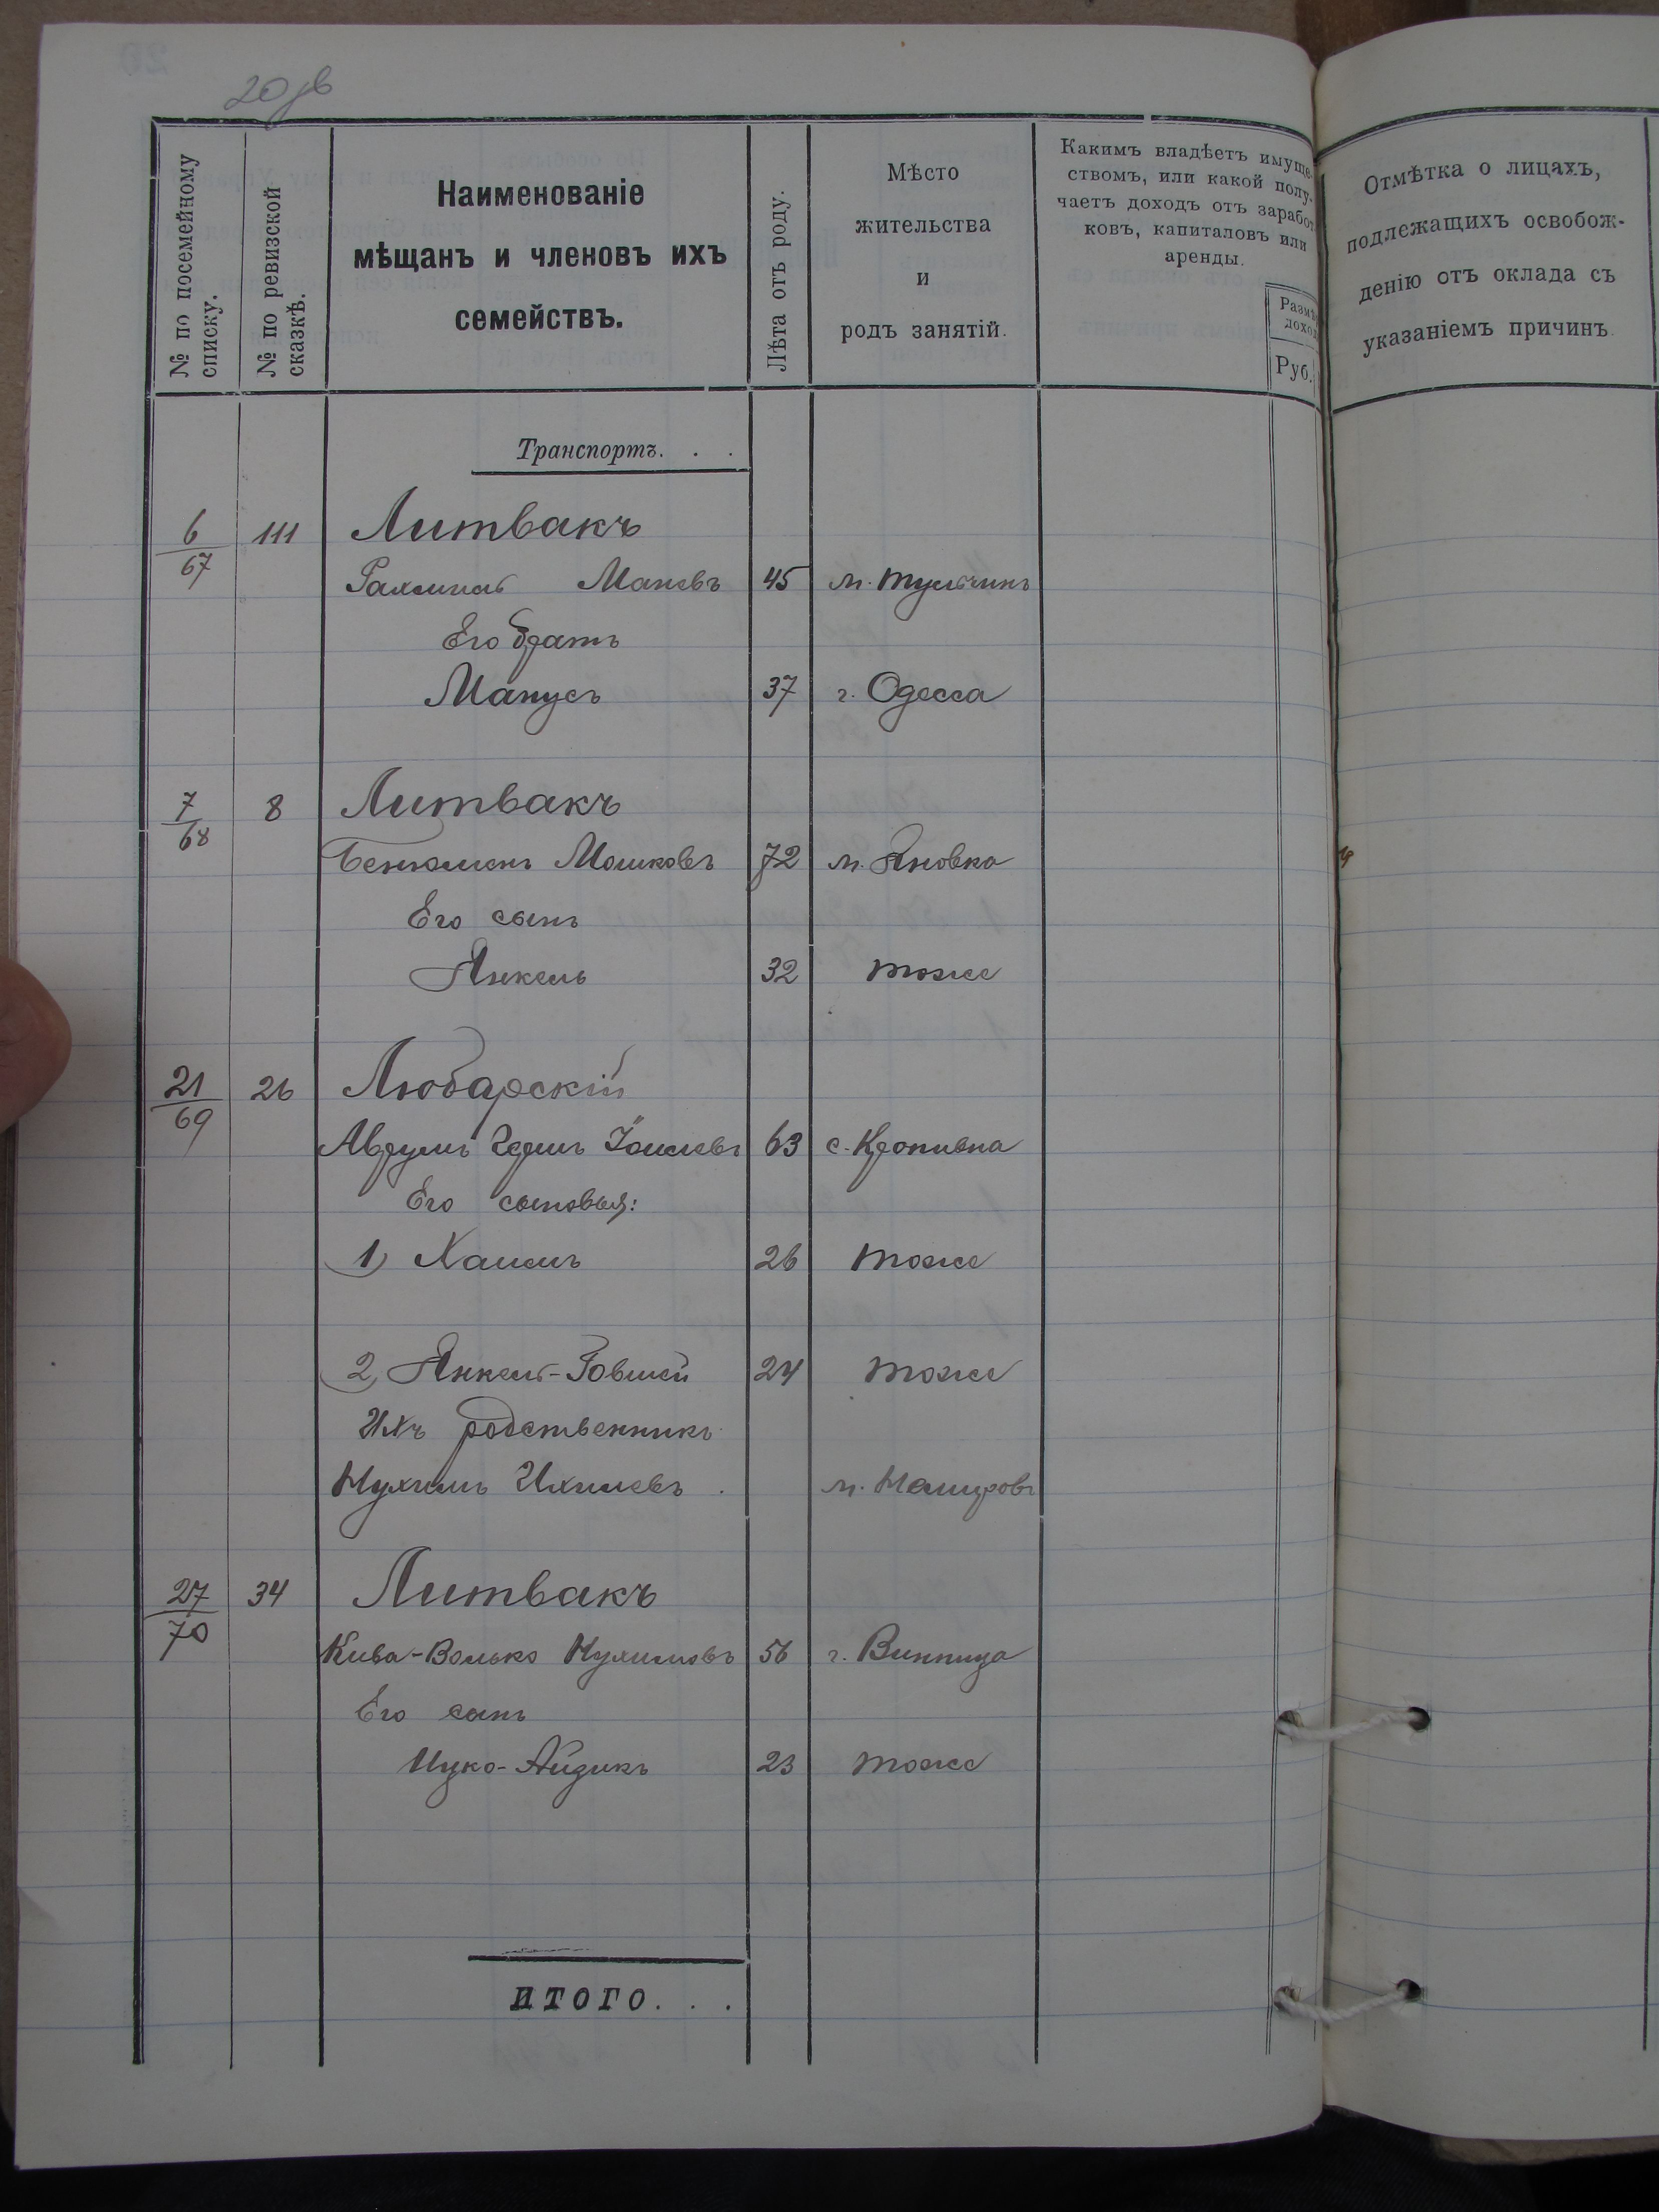 20 об
№ по посемейному списку.
№ по ревизской сказкѣ.
Наименованіе
мѣщанъ и членовъ ихъ
семействъ.
Лѣта отъ роду.
Мѣсто
жительства
и
родъ занятій.
Какимъ владѣетъ имуще-
ствомъ, или какой полу-
чаетъ доходъ отъ заработ
ковъ, капиталовъ или
аренды.
Размѣ
доход
Руб.
Отмѣтка о лицахъ,
подлежащихъ освобож-
денію отъ оклада съ
указаніемъ причинъ.
Транспортъ. . .
6/67 111 Литвакъ
Рахмиль Маневъ 45 м. Тульчинъ
Его братъ
Манусъ 37 г. Одесса
7/68 8 Литвакъ
Бенюменъ Мошковъ 72 м. Яновка
Его сынъ
Янкель 32 тоже
21/69 26 Любарскій
Аврумъ Гершъ 63 с. Кропивна
Его сыновья:
1) Хаимъ 26 тоже
2) Янкель-Говшей 24 тоже
Ихъ родственникъ
Нухимъ Ихилевъ м. Немировъ
27/70 34 Литвакъ
Кива-Волько Нухимовъ 56 г. Винница
Его сынъ
Ицко-Айзикъ 23 тоже
ИТОГО. . .